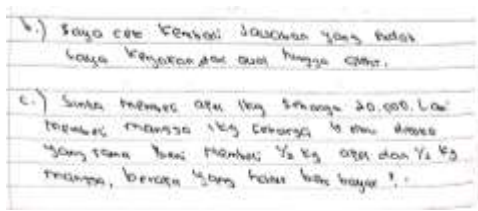 b.) Saya cek kembali jawaban yang sudah
saya kerjakan dari awal hingga akhir.
c.) Sinta membeli apel 1kg seharga 20.000. Lalu
membeli mangga 1kg seharga ribu
yang sama membeli 1/2 kg apel dan 1/2 kg
mangga, berapa yang harus bayar ?.